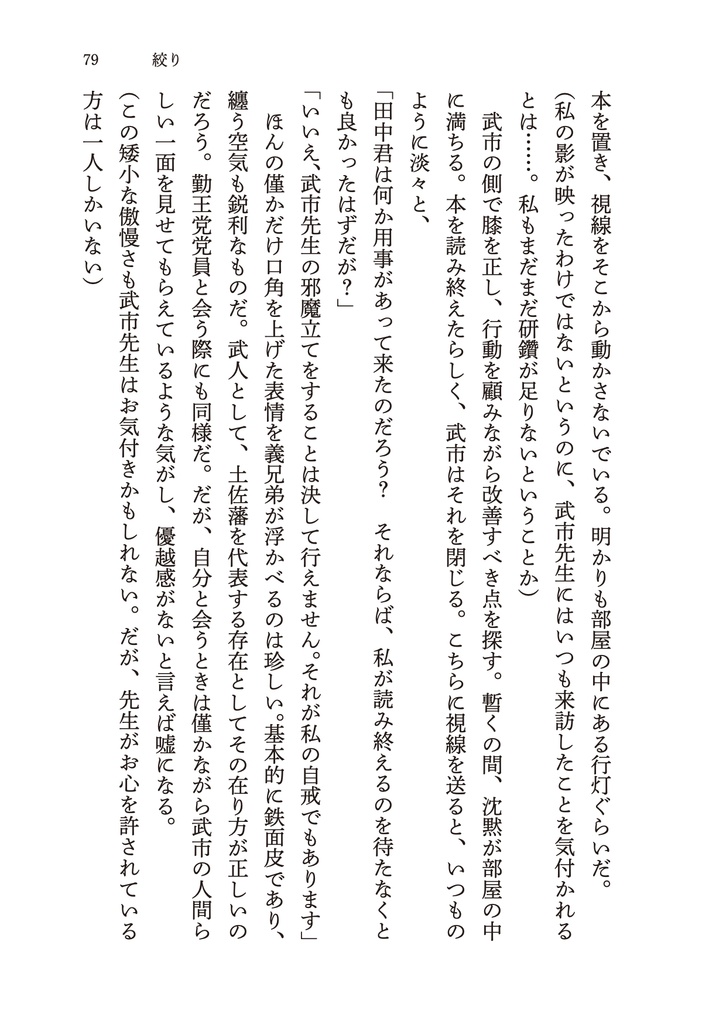 79 絞り
本を置き、視線をそこから動かさないでいる。明かりも部屋の中にある行灯ぐらいだ。
(私の影が映ったわけではないというのに、武市先生にはいつも来訪したことを気付かれる
とは……。私もまだまだ研鑽が足りないということか)
武市の側で膝を正し、行動を顧みながら改善すべき点を探す。暫くの間、沈黙が部屋の中
に満ちる。本を読み終えたらしく、武市はそれを閉じる。こちらに視線を送ると、いつもの
ように淡々と、
「田中君は何か用事があって来たのだろう? それならば、私が読み終えるのを待たなくと
も良かったはずだが?」
「いいえ、武市先生の邪魔立てをすることは決して行えません。それが私の自戒でもあります」
ほんの僅かだけ口角を上げた表情を義兄弟が浮かべるのは珍しい。基本的に鉄面皮であり、
纏う空気も鋭利なものだ。武人として、土佐藩を代表する存在としてその在り方が正しいの
だろう。勤王党党員と会う際にも同様だ。だが、自分と会うときは僅かながら武市の人間ら
しい一面を見せてもらえているような気がし、優越感がないと言えば嘘になる。
(この矮小な傲慢さも武市先生はお気付きかもしれない。だが、先生がお心を許されている
方は一人しかいない)